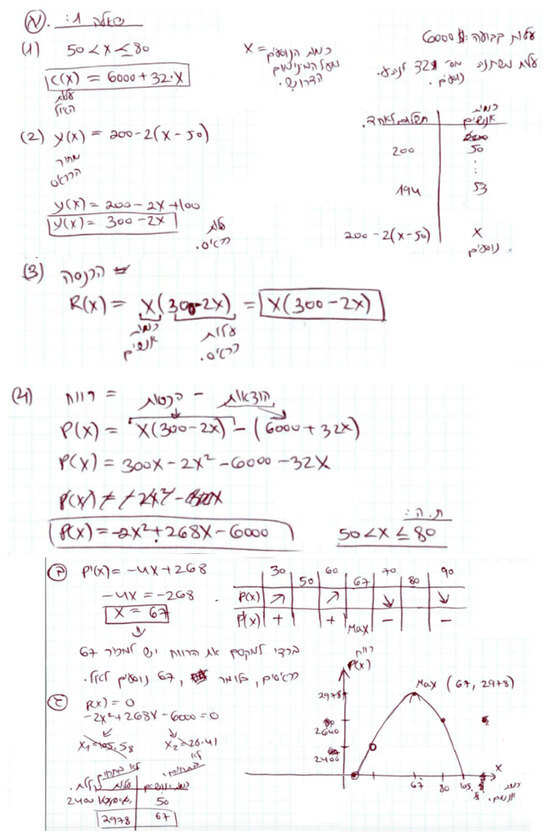 שאלה 1:
א.
(1) 50 < x ≤ 80
C(x) = 6000 + 32·x
x = כמות הנוסעים
מעל המינימום
הדרוש.
עלות קבועה: 6000$
עלות משתנה 32$ לנוסע.
כמות
אנשים
50 200
⋮
53 194
x 200-2(x-50)
נוסעים
(2) y(x) = 200-2(x-50)
מחיר
הכרטיס
y(x) = 200-2x+100
y(x) = 300-2x
עלות
כרטיס.
(3) הכנסה
R(x) = x(300-2x) = x(300-2x)
כמות
אנשים
עלות
כרטיס.
(4) רווח = הכנסות - הוצאות
P(x) = x(300-2x) - (6000+32x)
P(x) = 300x-2x²-6000-32x
P(x) = -2x²+268x-6000
ת.ה:
50 < x ≤ 80
ב P'(x) = -4x+268
-4x = -268
x = 67
30 50 60 67 70 80 90
P(x) ↗ ↗ ↘ ↘
P'(x) + + Max - -
בכדי למקסם את הרווח יש למכור 67
כרטיסים, כלומר 67 נוסעים
ג P(x) = 0
-2x²+268x-6000=0
x₁=105.58 x₂=28.41
2400 50
2978 67
רווח
P(x)
Max (67, 2978)
2978
2640
2400
67 80 105.58
x
כמות
אנשים.